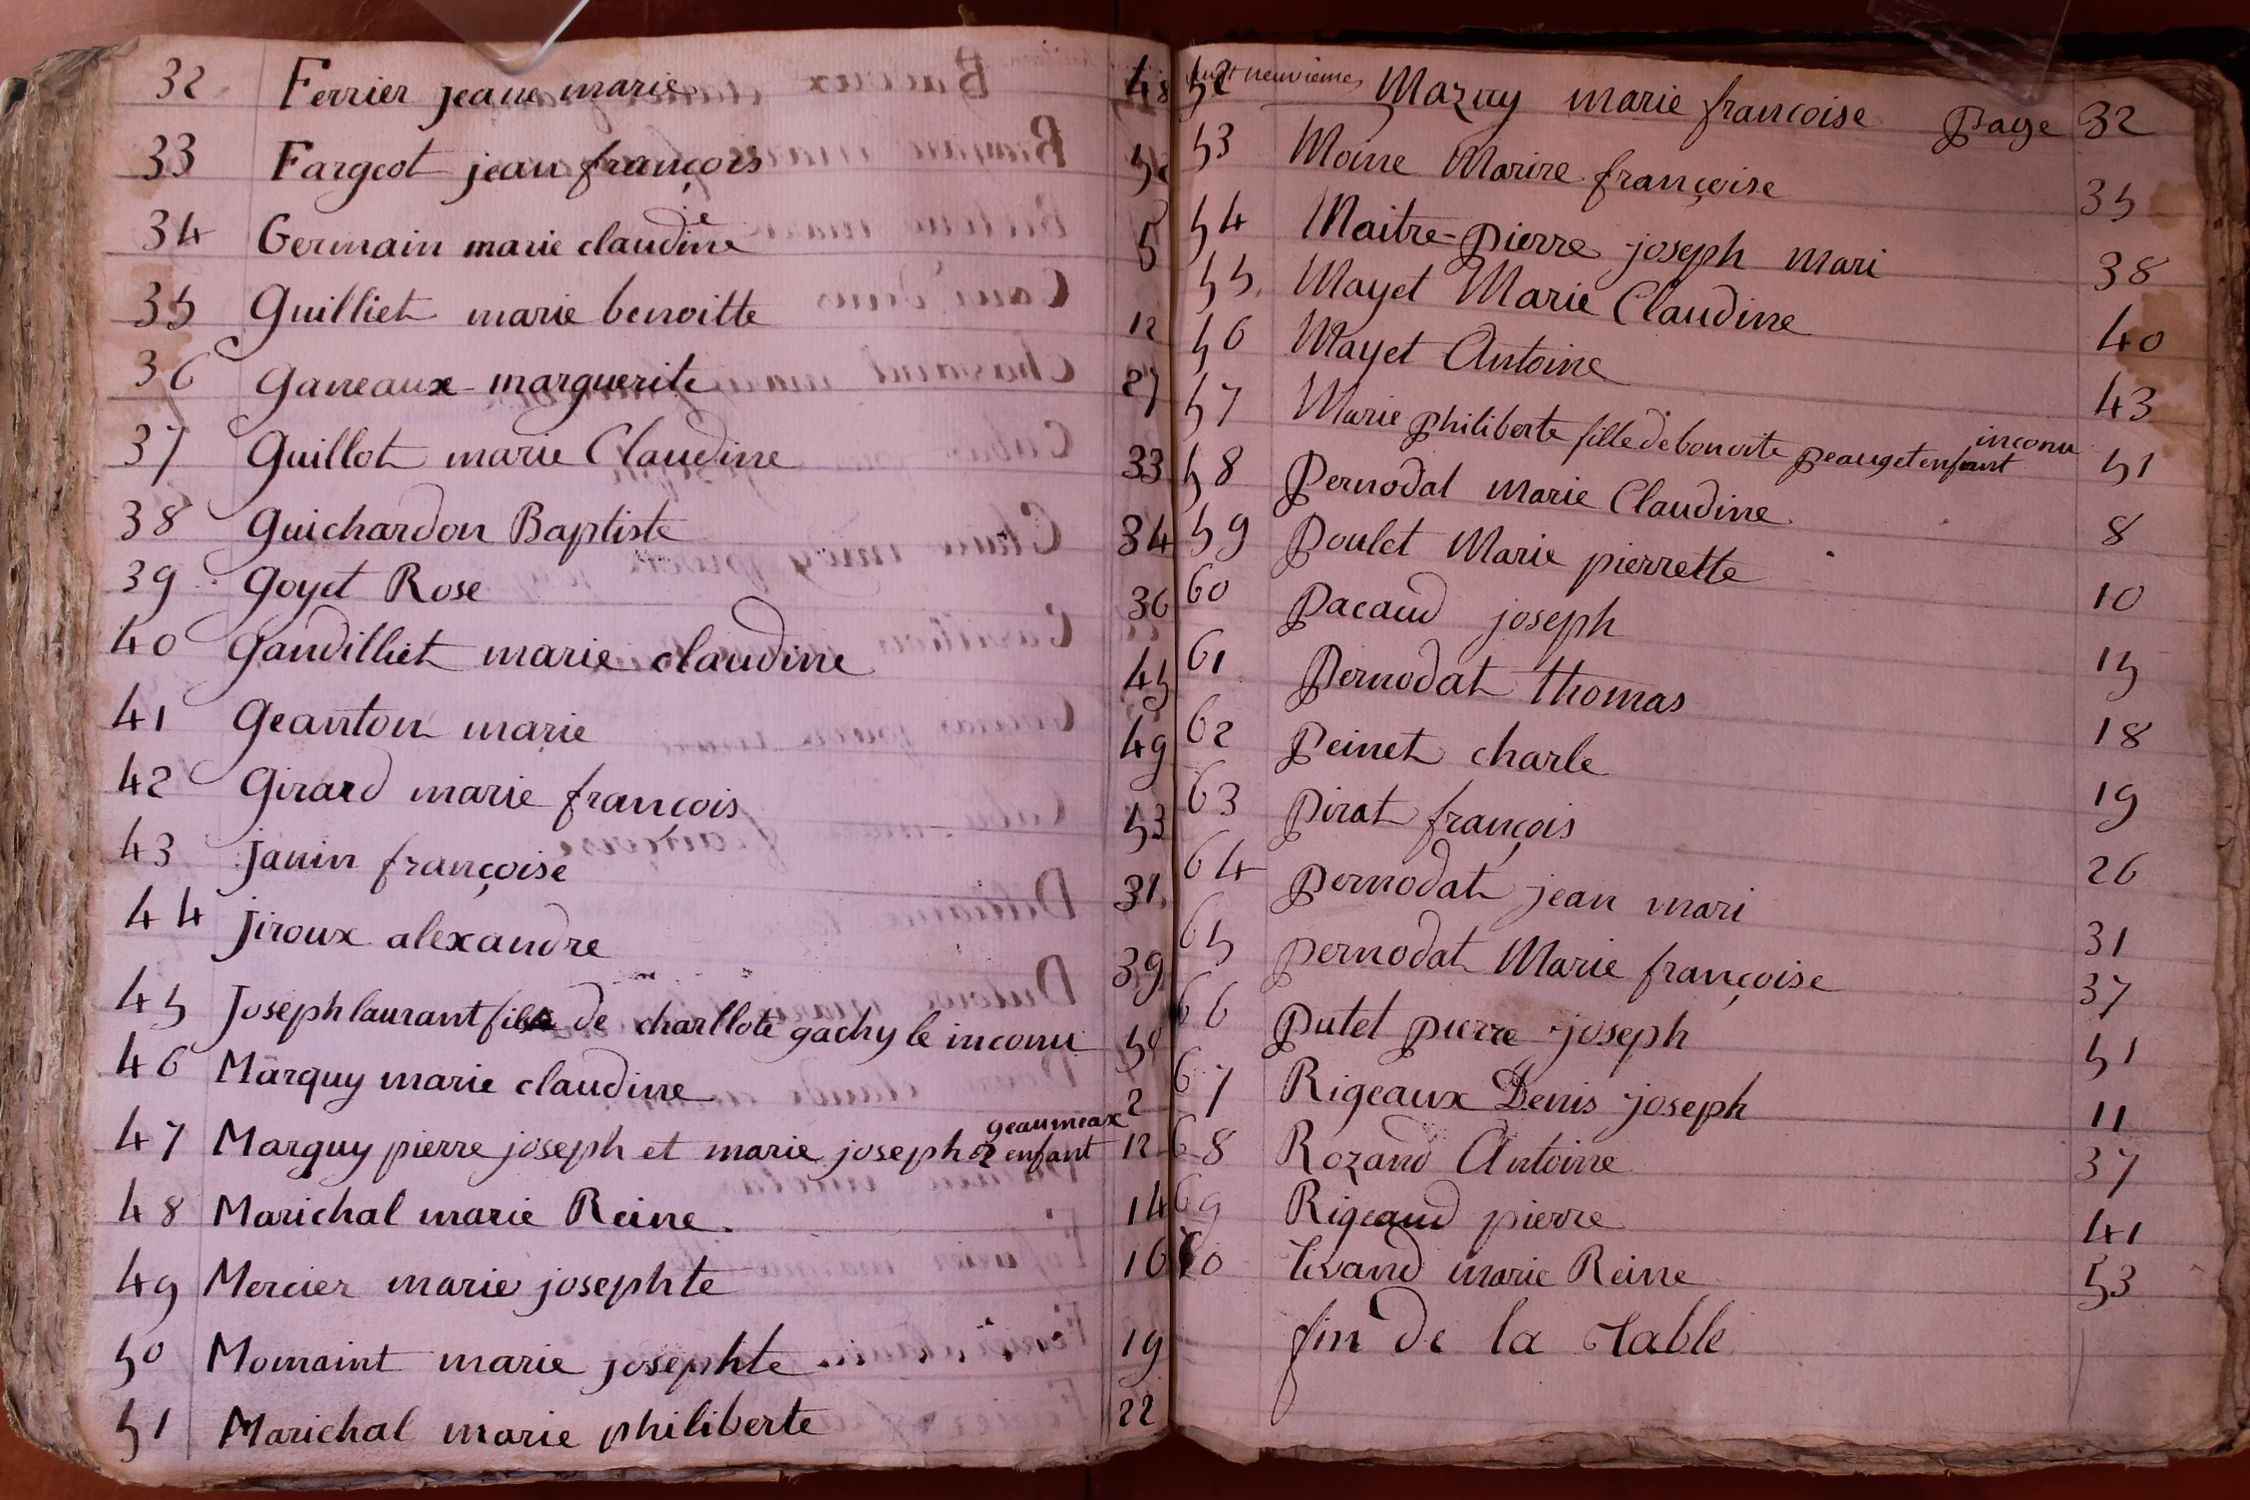 32 Ferrier jeane marie 48
33 Fargeot jean françois 52
34 Germain marie claudine 5
35 Guilliet marie benoitte 12
36 ganeaux marguerite 27
37 Guillot marie Claudine 33
38 Guichardon Baptiste 34
39 goyet Rose 36
40 gaudilliet marie claudine 45
41 geanton marie 49
42 girard marie francois 53
43 janin françoise 31
44 jiroux alexandre 39
45 Joseph laurant fils de charllote gachy le inconu 50
46 Marquy marie claudine 2
geaumeax
47 Marquy pierre joseph et marie joseph 2 enfant 12
48 Marichal marie Reine 14
49 Mercier marie josephte 16
50 Momaint marie josephte 19
51 Marichal marie philiberte 22
52 neuvieme Mazuy marie francoise page 32
53 Moine Marire françoise 35
54 Maitre-pierre joseph mari 38
55 Mayet Marie Claudine 40
56 Mayet Antoine 43
inconu
57 Marie philiberte fille de benoite peauget enfant 51
58 Pernodat marie Claudine 8
59 Poulet Marie pierrette 10
60 Pacaud joseph 15
61 Pernodat thomas 18
62 Peinet charle 19
63 Pirat françois 26
64 Pernodat jean mari 31
65 Pernodat Marie françoise 37
66 Putet pierre joseph 51
67 Rigeaux Denis joseph 11
68 Rozand Antoine 37
69 Rigeaud pierre 41
70 marie Reine 53
fin de la table